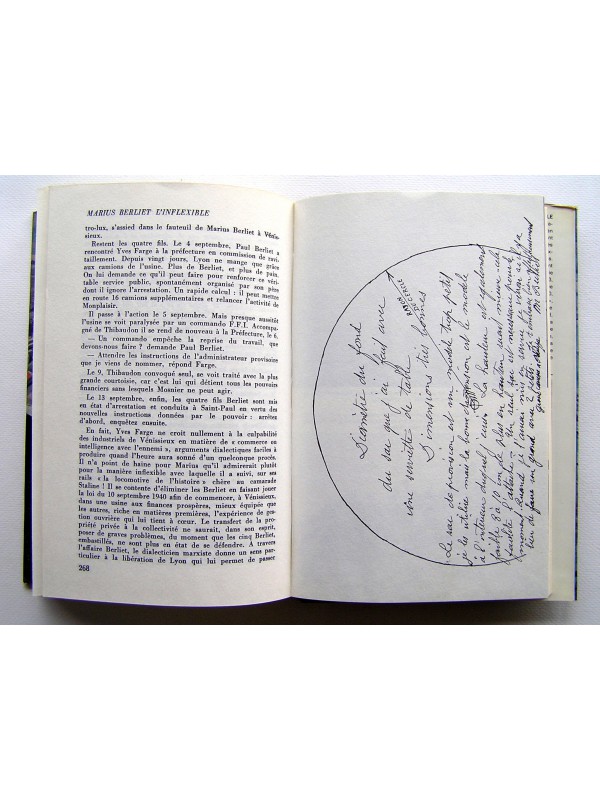 MARIUS BERLIET L'INFLEXIBLE
tro-lux, s'assied dans le fauteuil de Marius Berliet à Vénis-
sieux.
Restent les quatre fils. Le 4 septembre, Paul Berliet a
rencontré Yves Farge à la préfecture en commission de ravi-
taillement. Depuis vingt jours, Lyon ne mange que grâce
aux camions de l'usine. Plus de Berliet, et plus de pain.
On lui demande ce qu'il peut faire pour remettre ce véri-
table service public, spontanément organisé par son père
dont il ignore l'arrestation. Un rapide calcul : il peut mettre
en route 16 camions supplémentaires et relancer l'activité de
Monplaisir.
Il passe à l'action le 5 septembre. Mais presque aussitôt
l'usine se voit paralysée par un commando F.F.I. Accompa-
gné de Thibaudon il est reçu de nouveau à la Préfecture, le 6.
— Un commando empêche la reprise du travail, que
devons-nous faire ? demande Paul Berliet.
— Attendre les instructions de l'administrateur provisoire
que je viens de nommer, répond Farge.
Le 9, Thibaudon convoqué seul, se voit traité avec la plus
grande courtoisie, car c'est lui qui détient tous les pouvoirs
financiers sans lesquels Mosnier ne peut agir.
Le 13 septembre, enfin, les quatre fils Berliet sont mis
en état d'arrestation et conduits à Saint-Paul en vertu des
nouvelles instructions données par le pouvoir : arrêtez
d'abord, enquêtez ensuite.
En fait, Yves Farge ne croit nullement à la culpabilité
des industriels de Vénissieux en matière de « commerce ou
intelligence avec l'ennemi », arguments dialectiques faciles à
produire quand l'heure aura sonné d'un quelconque procès.
Il n'a point de haine pour Marius qu'il admirerait plutôt
pour la manière inflexible avec laquelle il a suivi, sur ses
rails « la locomotive de l'histoire » chère au camarade
Staline ! Il se contente d'éliminer les Berliet en faisant jouer
la loi du 10 septembre 1940 afin de commencer, à Vénissieux,
dans une usine aux finances prospères, mieux équipée que
les autres, riche en matières premières, l'expérience de ges-
tion ouvrière qui lui tient à cœur. Le transfert de la pro-
priété privée à la collectivité ne saurait, dans son esprit,
poser de graves problèmes, du moment que les cinq Berliet,
embastillés, ne sont plus en état de se défendre. A travers
l'affaire Berliet, le dialecticien marxiste donne un sens par-
ticulier à la libération de Lyon qui lui permet de passer
268
Diamètre du fond
du sac que j'ai fait avec
une serviette de table
Dimensions très bonnes
Le sac de provision est un modèle trop petit
je les utilise mais la bonne dimension est le modèle
à l'intérieur duquel
La hauteur est également
8 à 10 cm de plus en hauteur serait mieux
M. Berliet